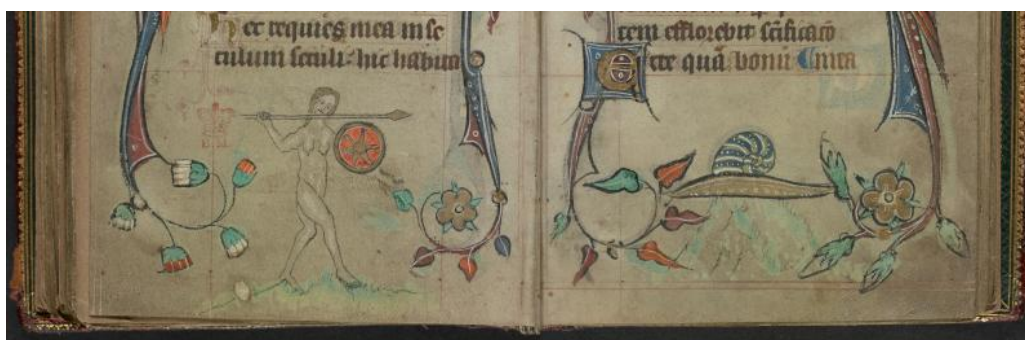 ec requies mea in se
culum seculi: hic habita
rem efflorebit scificacō
Ecce quā bonū Unita